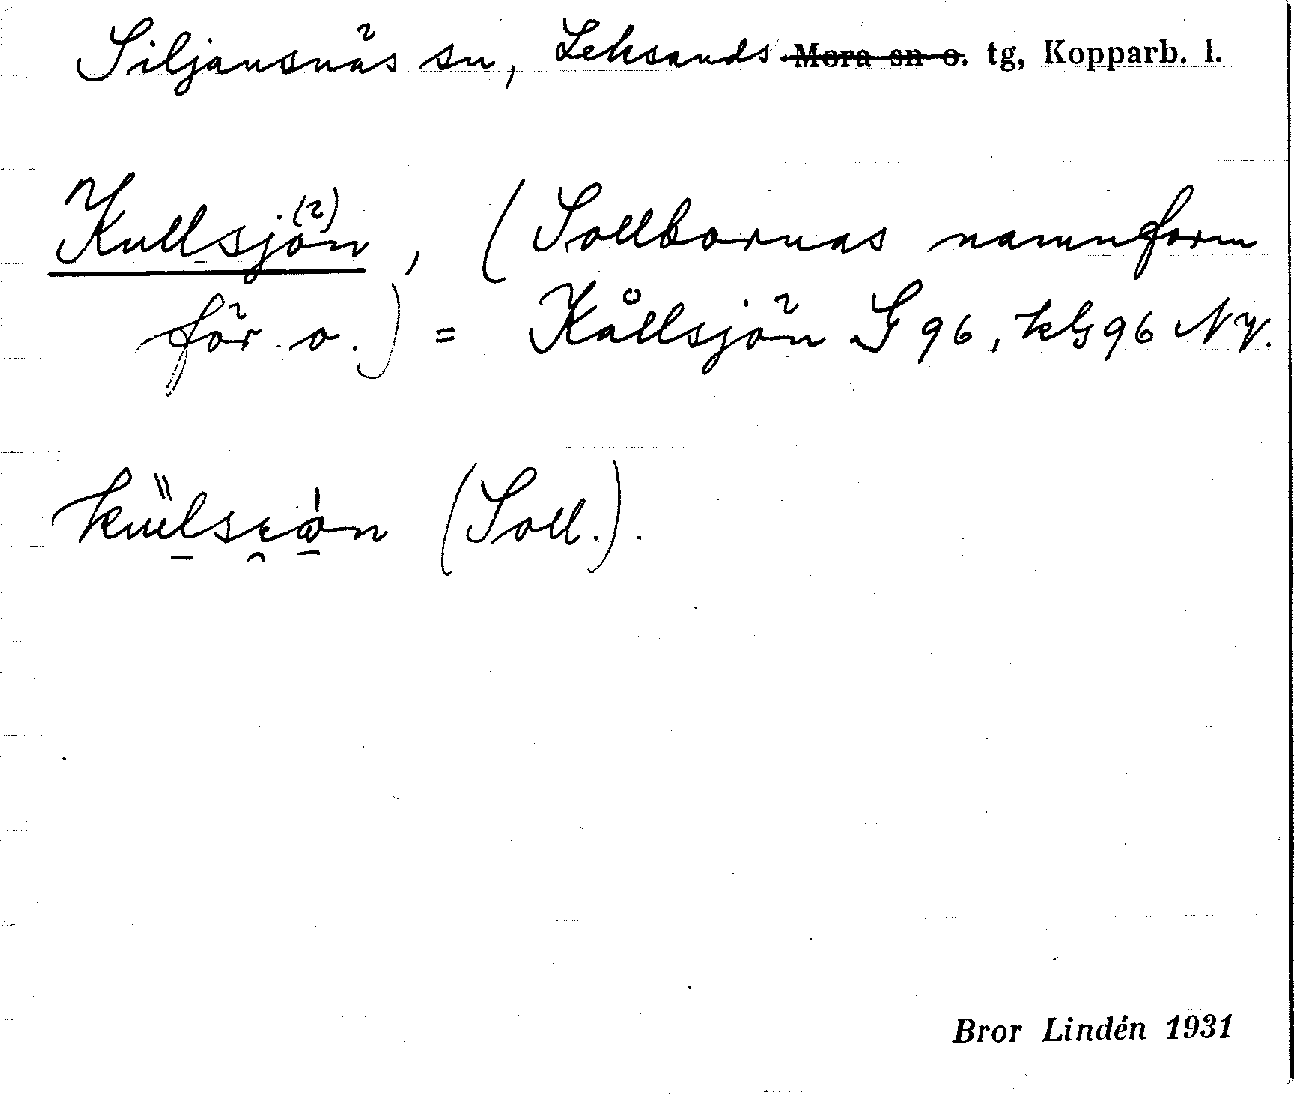 Siljansnäs sn, Leksands ~~Mora sn o.~~ tg, Kopparb. l.
Kullsjön, (Sollbornas namnform
för o.) = Kållsjön G 96, kG 96 NV.
(Soll.).
Bror Lindén 1931